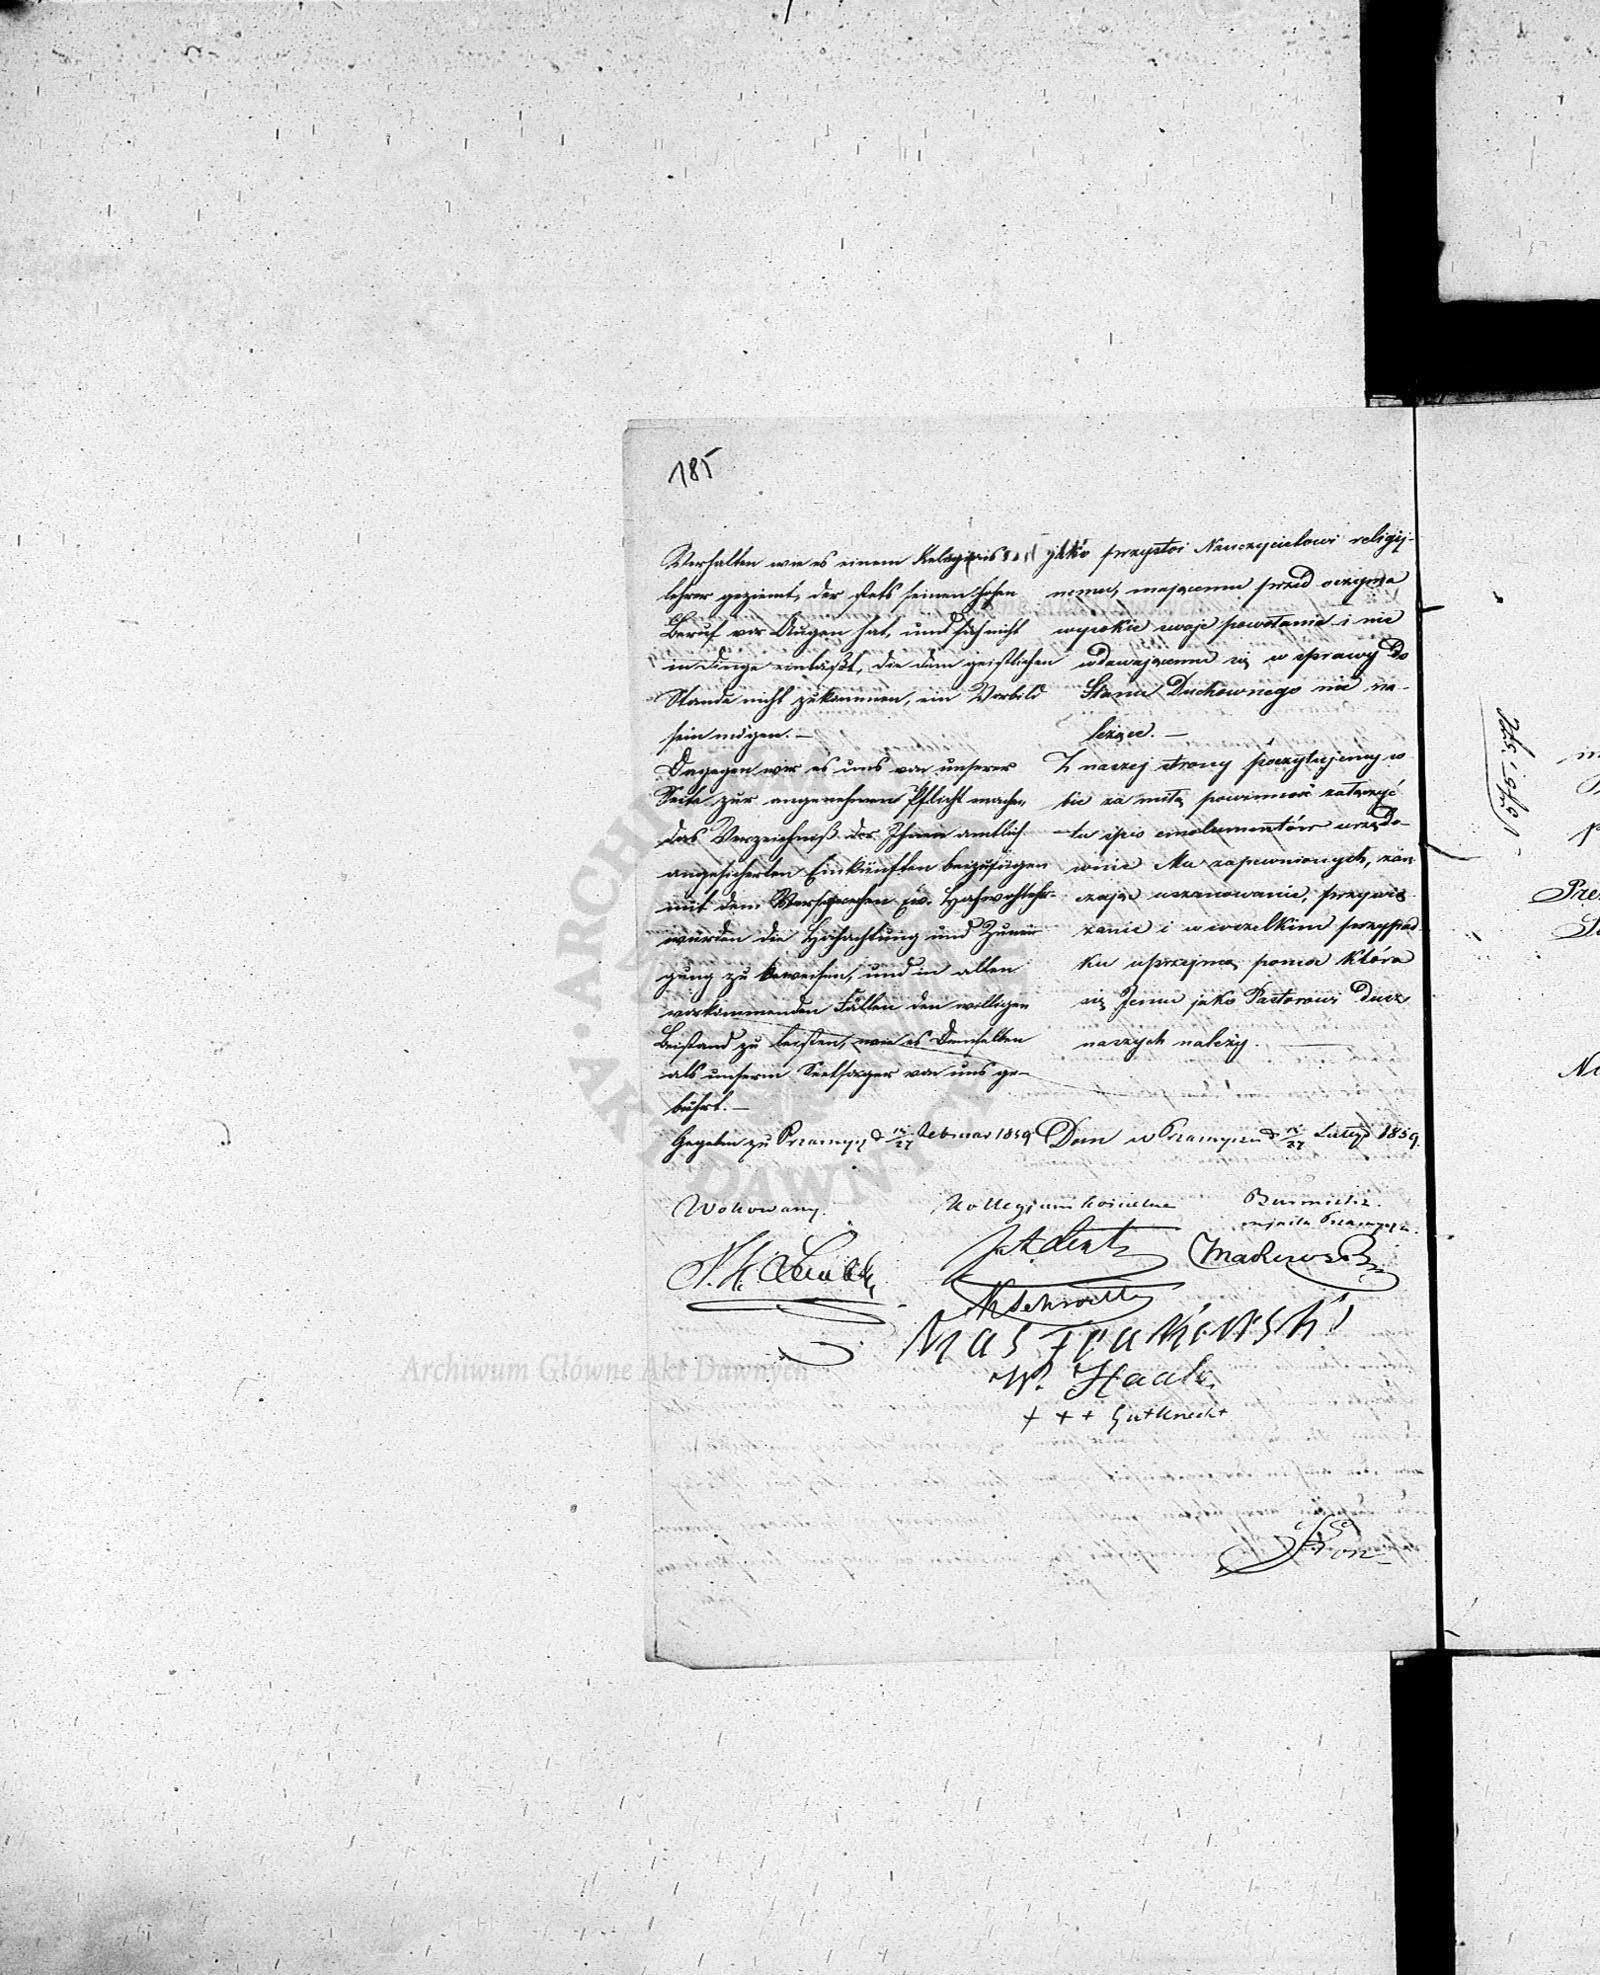 185
Verhalten wie es einem Religions
lehrer geziemt, der stets seinen hohen
Beruf vor Augen hat, und sich nicht
in Dinge einläßt, die dem geistlichen
Stande nicht zukommen, ein Vorbild
sein mögen. —
Dagegen wir es uns von unserer
Seite zur angenehmen Pflicht machen
das Verzeichniß der Ihnen amtlich
angesicherten Einkünften beizufügen
mit dem Versprechen Ew. Hochwohlehr-
würden die Hochachtung und Zunei
gung zu beweisen, und in allen
vorkommenden Fällen den willigen
Beistand zu leisten, wie es Denselben
als unserm Seelsorger von uns ge-
bührt. —
Gegeben zu Przasnysz d 15/27 Februar 1859
jako przystoi Nauczycielowi religij-
nemu, mającemu przed oczyma
wysokie swoje powołanie i nie
wdawającemu się w sprawy do
Stanu Duchownego nie na-
leżące. —
Z naszej strony poczytujemy so
bie za miłą powinność załączyć
tu spis emolumentów urzędo-
wnie Mu zapewnionych,
uszanowanie, przywią
zanie i w wszelkim przypad
ku uprzejmą pomoc która
się Jemu jako Pastorowi Dusz
naszych należy.
Dan w Przasnyszu d 15/27 Lutego 1859.
Wokowany.
Kollegium kościelne
Burmistrz
miasta Przasnysza.
W. Haak
+ + + Gutknecht
Archiwum Główne Akt Dawnych